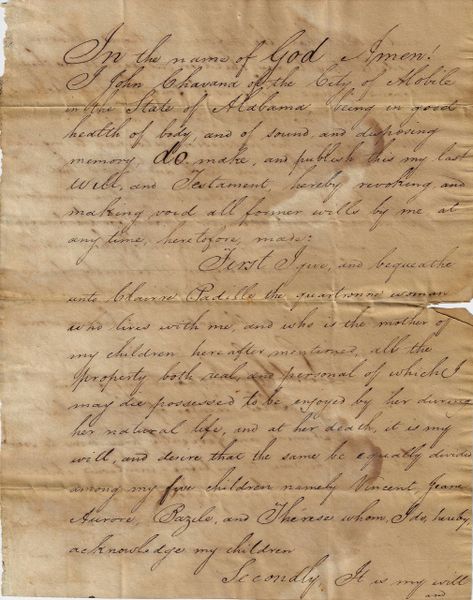 In the name of God Amen!
I John Chavana of the City of Mobile
in the State of Alabama being in good
health of body, and of sound and disposing
memory, do make, and publish this my last
Will, and Testament, hereby revoking and
making void all former wills by me at
any time, heretofore, made:
First I give, and bequeathe
unto Padillo the quartronne woman
who lives with me, and who is the mother of
my children hereafter mentioned, all the
property both real, and personal of which I
may die possessed to be, enjoyed by her during
her natural life, and at her death, it is my
will, and desire that the same be equally divided
among my five children namely Vincent,
Aurore, Bazile, and Thérèse whom, I do, hereby
acknowledge my children
Secondly It is my will
and